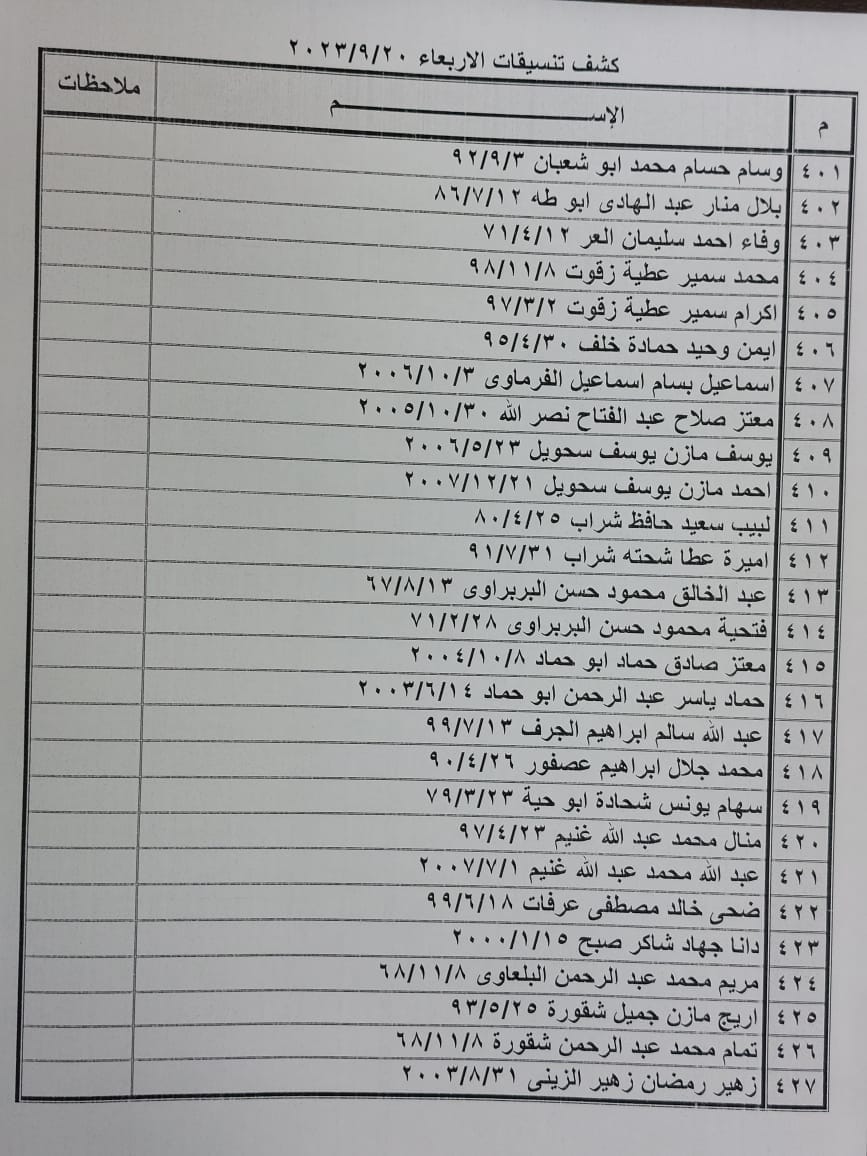 كشف تنسيقات الاربعاء ٢٠٢٣/٩/٢٠
م الإســـم ملاحظات
٤٠١ وسام حسام محمد ابو شعبان ٩٢/٩/٣
٤٠٢ بلال منار عبد الهادى ابو طه ٨٦/٧/١٢
٤٠٣ وفاء احمد سليمان العر ٧١/٤/١٢
٤٠٤ محمد سمير عطية زقوت ٩٨/١١/٨
٤٠٥ اكرام سمير عطية زقوت ٩٧/٣/٢
٤٠٦ ايمن وحيد حمادة خلف ٩٥/٤/٣٠
٤٠٧ اسماعيل بسام اسماعيل الفرماوى ٢٠٠٦/١٠/٣
٤٠٨ معتز صلاح عبد الفتاح نصر الله ٢٠٠٥/١٠/٣٠
٤٠٩ يوسف مازن يوسف سحويل ٢٠٠٦/٥/٢٣
٤١٠ احمد مازن يوسف سحويل ٢٠٠٧/١٢/٢١
٤١١ لبيب سعيد حافظ شراب ٨٠/٤/٢٥
٤١٢ اميرة عطا شحته شراب ٩١/٧/٣١
٤١٣ عبد الخالق محمود حسن البربراوى ٦٧/٨/١٣
٤١٤ فتحية محمود حسن البربراوى ٧١/٢/٢٨
٤١٥ معتز صادق حماد ابو حماد ٢٠٠٤/١٠/٨
٤١٦ حماد ياسر عبد الرحمن ابو حماد ٢٠٠٣/٦/١٤
٤١٧ عبد الله سالم ابراهيم الجرف ٩٩/٧/١٣
٤١٨ محمد جلال ابراهيم عصفور ٩٠/٤/٢٦
٤١٩ سهام يونس شحادة ابو حية ٧٩/٣/٢٣
٤٢٠ منال محمد عبد الله غنيم ٩٧/٤/٢٣
٤٢١ عبد الله محمد عبد الله غنيم ٢٠٠٧/٧/١
٤٢٢ ضحى خالد مصطفى عرفات ٩٩/٦/١٨
٤٢٣ دانا جهاد شاكر صبح ٢٠٠٠/١/١٥
٤٢٤ مريم محمد عبد الرحمن البلعاوى ٦٨/١١/٨
٤٢٥ اريج مازن جميل شقورة ٩٣/٥/٢٥
٤٢٦ تمام محمد عبد الرحمن شقورة ٦٨/١١/٨
٤٢٧ زهير رمضان زهير الزينى ٢٠٠٣/٨/٣١